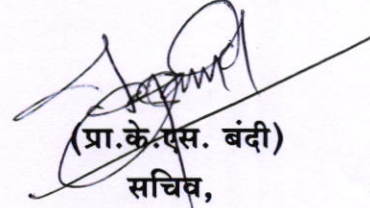 (प्रा.के.एस. बंदी)
सचिव,